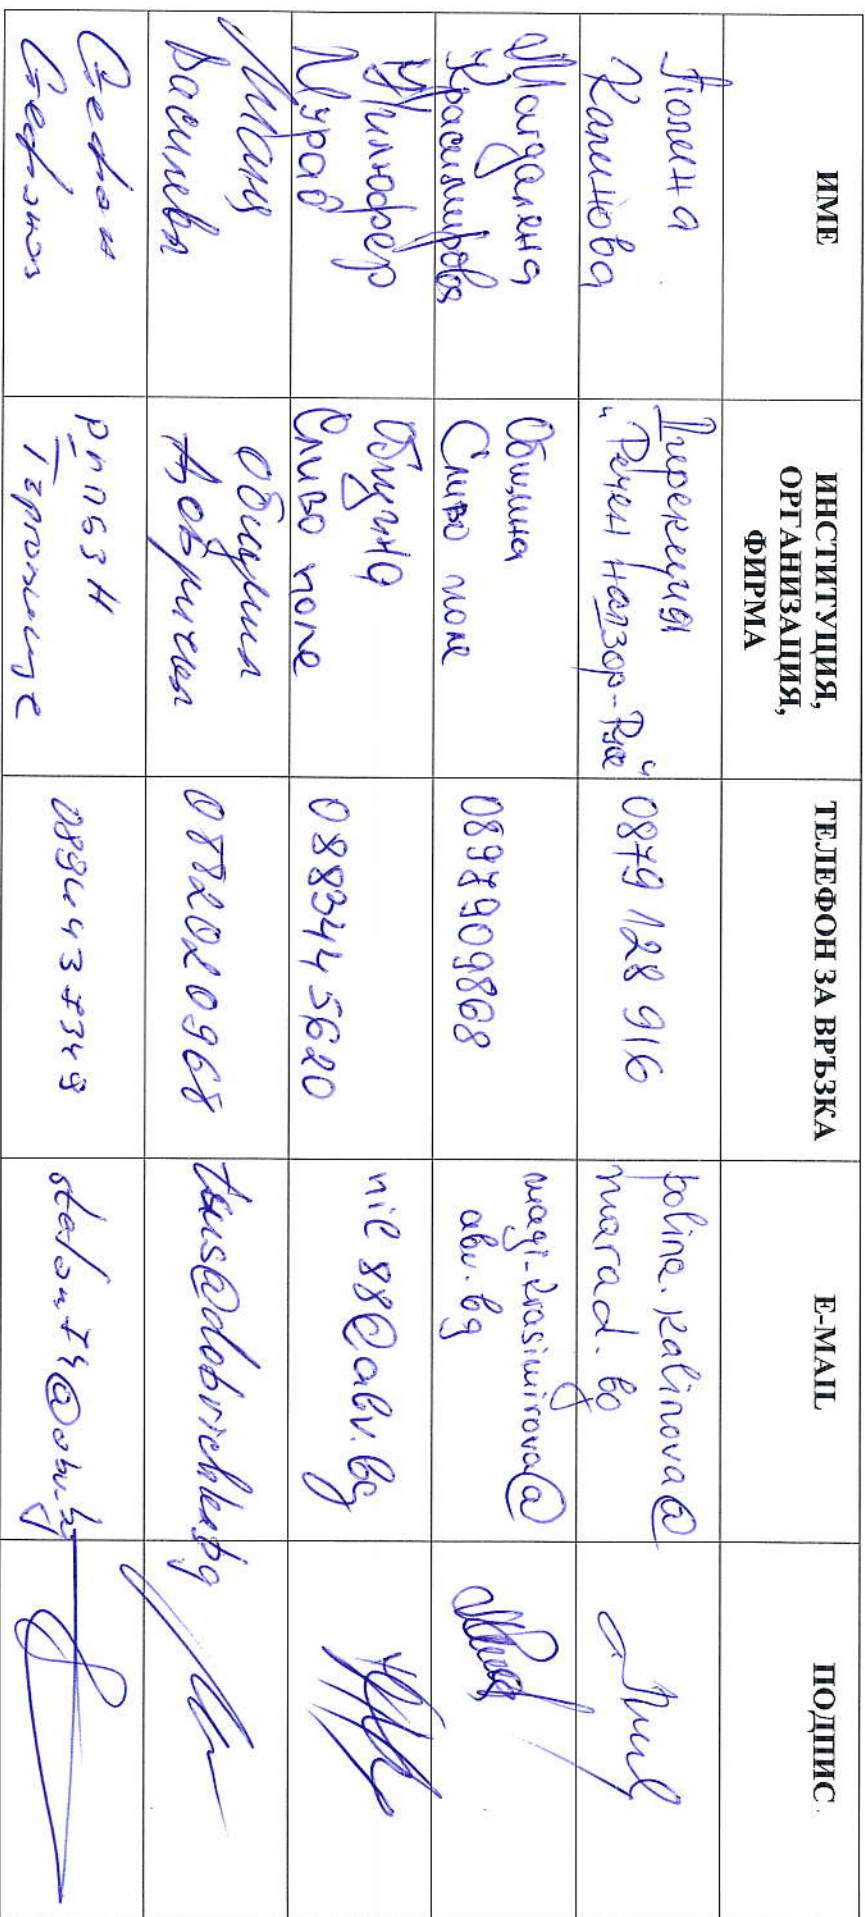 ИМЕ
ИНСТИТУЦИЯ,
ОРГАНИЗАЦИЯ,
ФИРМА
ТЕЛЕФОН ЗА ВРЪЗКА
E-MAIL
ПОДПИС
Полина
Калинова
Дирекция
"Речен надзор - Русе"
0879 128 916
polina.kalinova@
marad.bg
Магдалена
Красимирова
Община
Сливо поле
0897909868
magi_krasimirova@
abv.bg
Нилюфер
Мурад
Община
Сливо поле
0883445620
nil88@abv.bg
Василева
Община
Добричка
0882020968
Стефан
Стефанов
РДПБЗН
Търговище